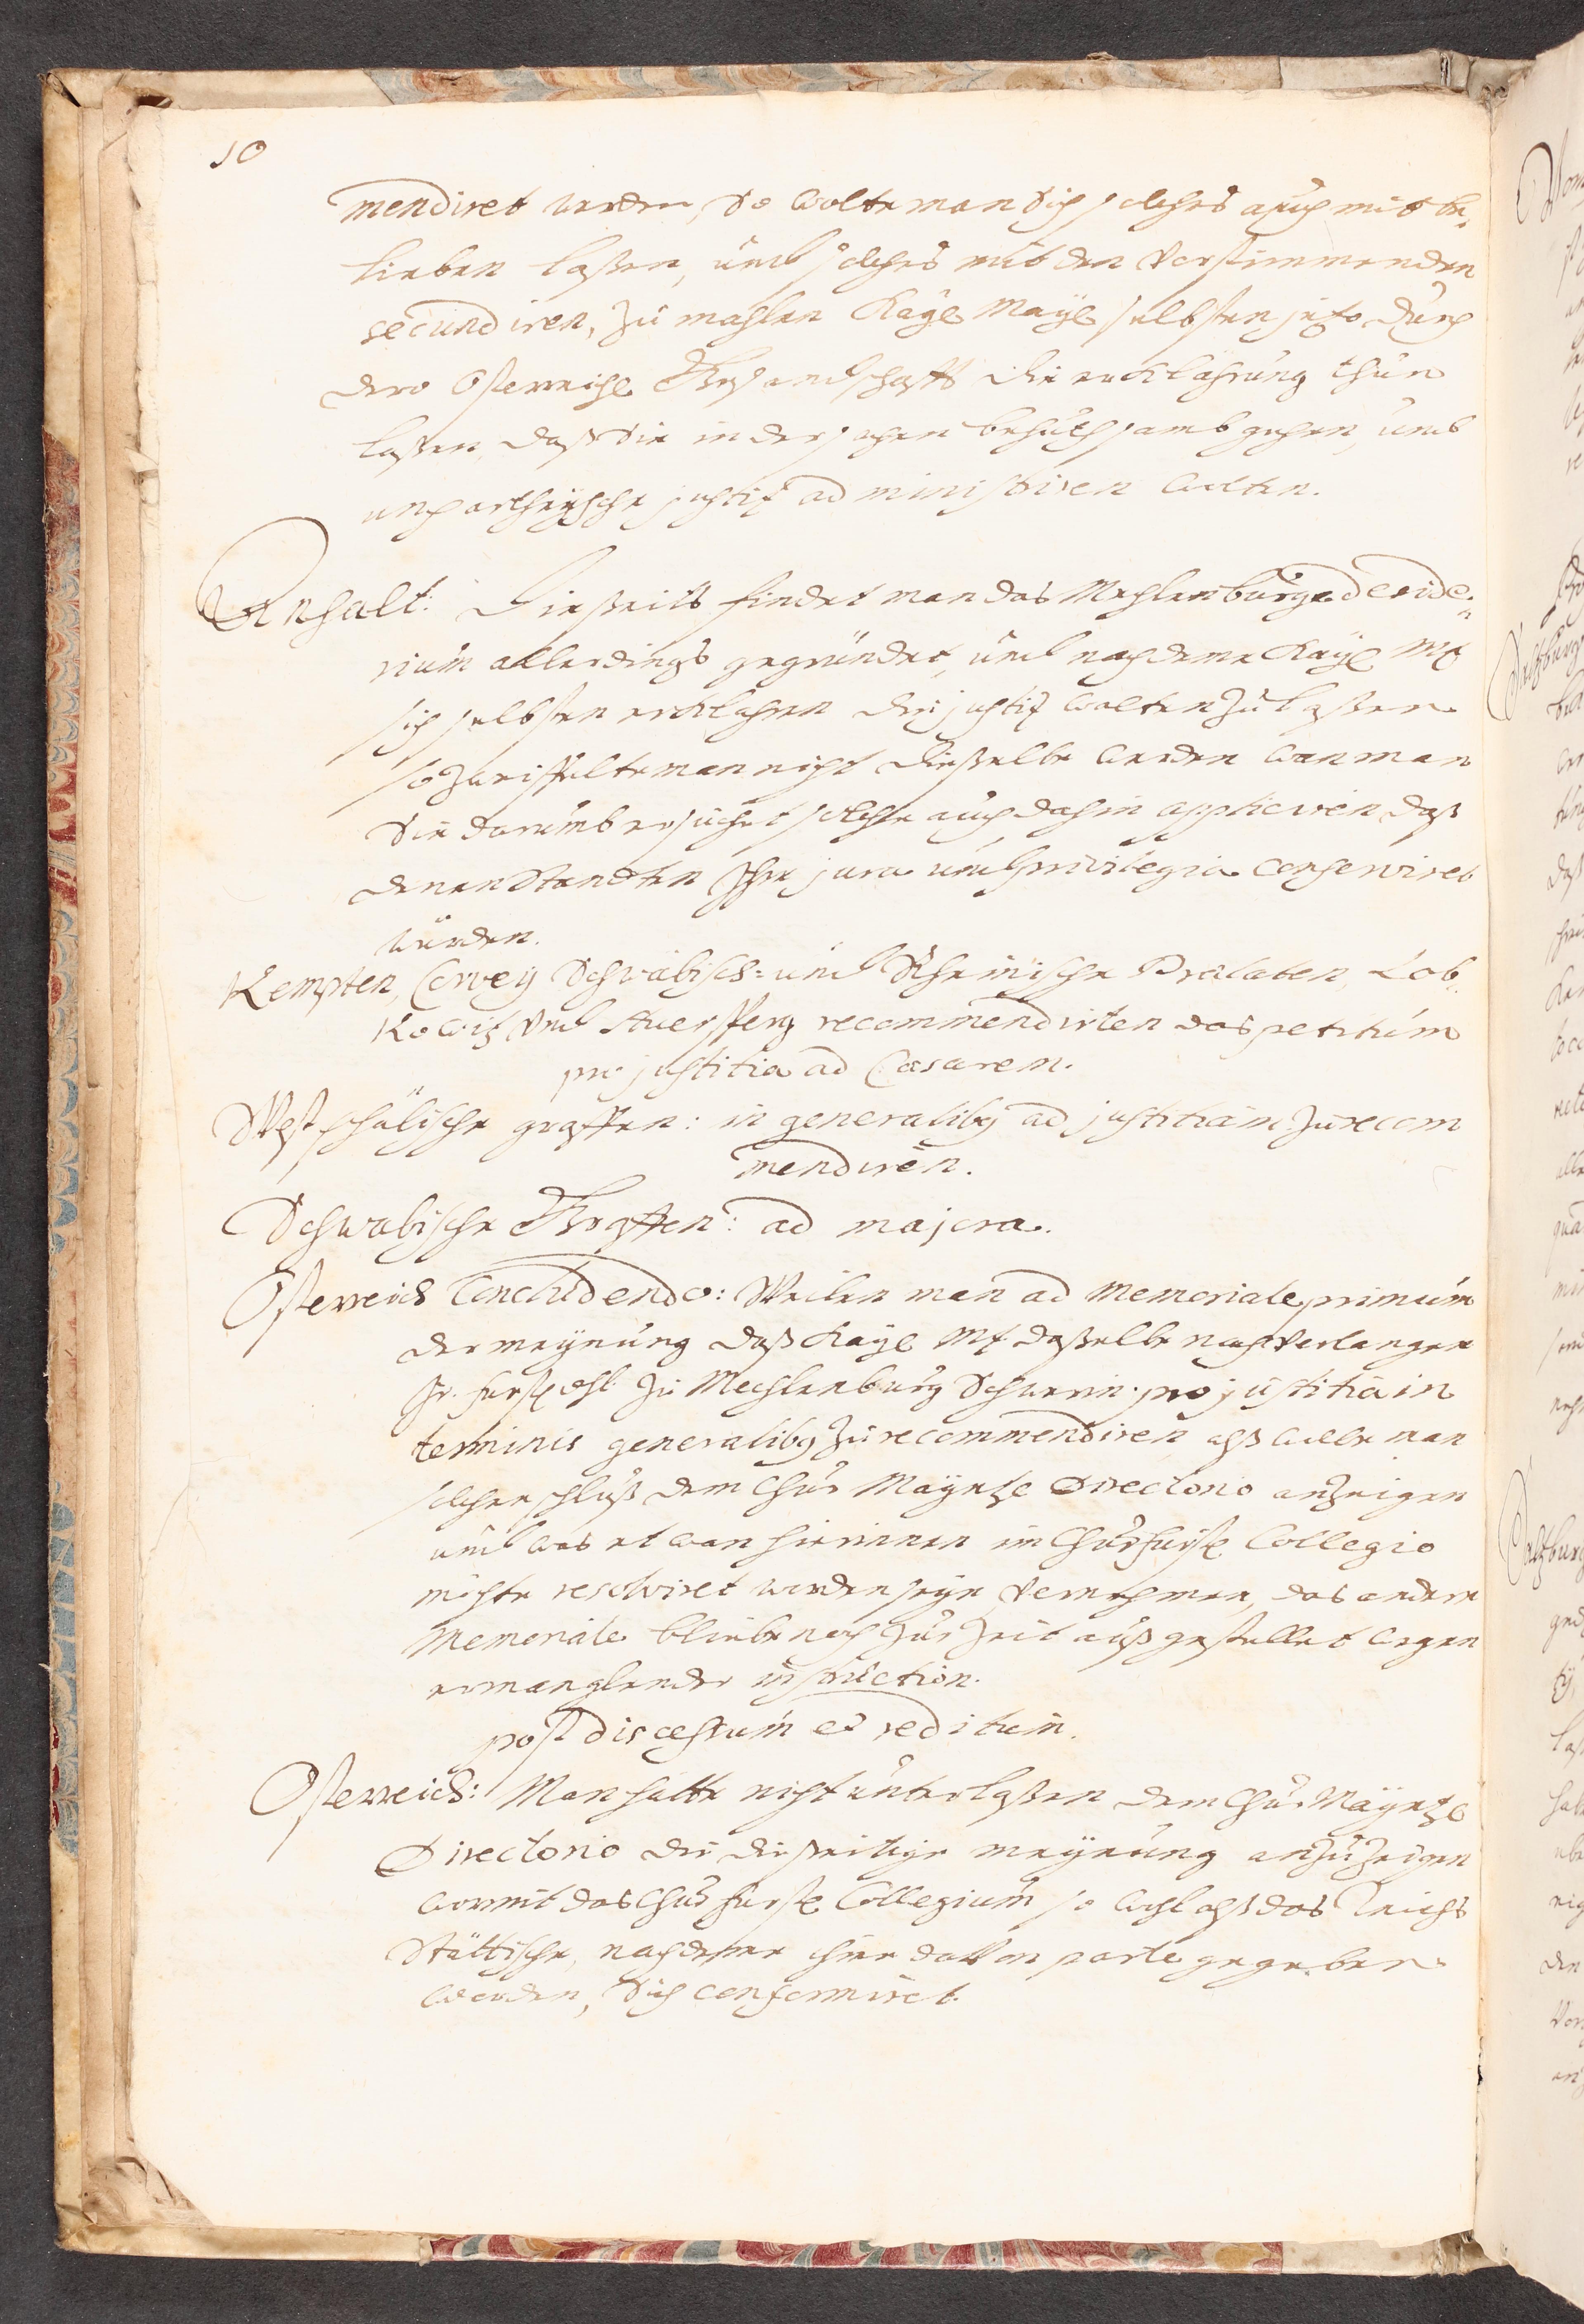 10
mendiret werden, So wolte man Sich solches auch mit be,
lieben laßen, und solches mit den Vorstimmenden
secundiren, zu mahlen Kayl. Mayl. selbsten jezto durch
dero Österreichl. Gesandschafft die erklahrung thun
laßen, daß Sie in der sachen behuthsamb gehen, und
unpartheyische justiz administriren wolten.
Anhalt: Dießeits findet man das Mechlenburg. deside„
rium allerdings gegründet, und nachdeme Kayl. Mt.
sich selbsten erklahren die justiz walten zu laßen
so zweiffelte man nicht dieselbe werden wan man
Sie darumb ersuchet solche auch dahin appliciren daß
denen Standten Ihre jura und privilegia conserviret
würden.
Kempten, Corvey Schwäbisch: und Rheinische Prälaten, Lob„
Kowiz Und Auersperg recommendirten das petitum
pro justitia ad Cæsarem.
Westphälische graffen: in generalibq ad justitiam zu recom
mendiren.
Schwabische Graffen: ad majora.
Österreich Concludendo: Weilen man ad Memoriale primum
der meynung daß Kayl. Mt. daßelbe nach Verlangen
Hr. fürstl. dhl. zu Mechlenburg Schwerin pro justitia in
terminis generalibq zu recommendiren, alß wolle man
solchen schluß dem Chur Mayntzl. Directorio anzeigen
und was etwan hierinnen im Churfürstl. Collegio
möchte resolviret worden seyn, Vernehmen, das andere
Memoriale bliebe noch zur Zeit außgestellet wegen
ermanglender instruction.
post discessum et reditum.
Österreich: Man hätte nicht unterlaßen dem Chur Mayntzl.
Directorio die dießeitige meynung anzuzeigen
womit das Churfürstl. Collegium so wohl alß das Reichs
Stättische, nachdeme ihme davon parte gegeben
worden, Sich conformiret.